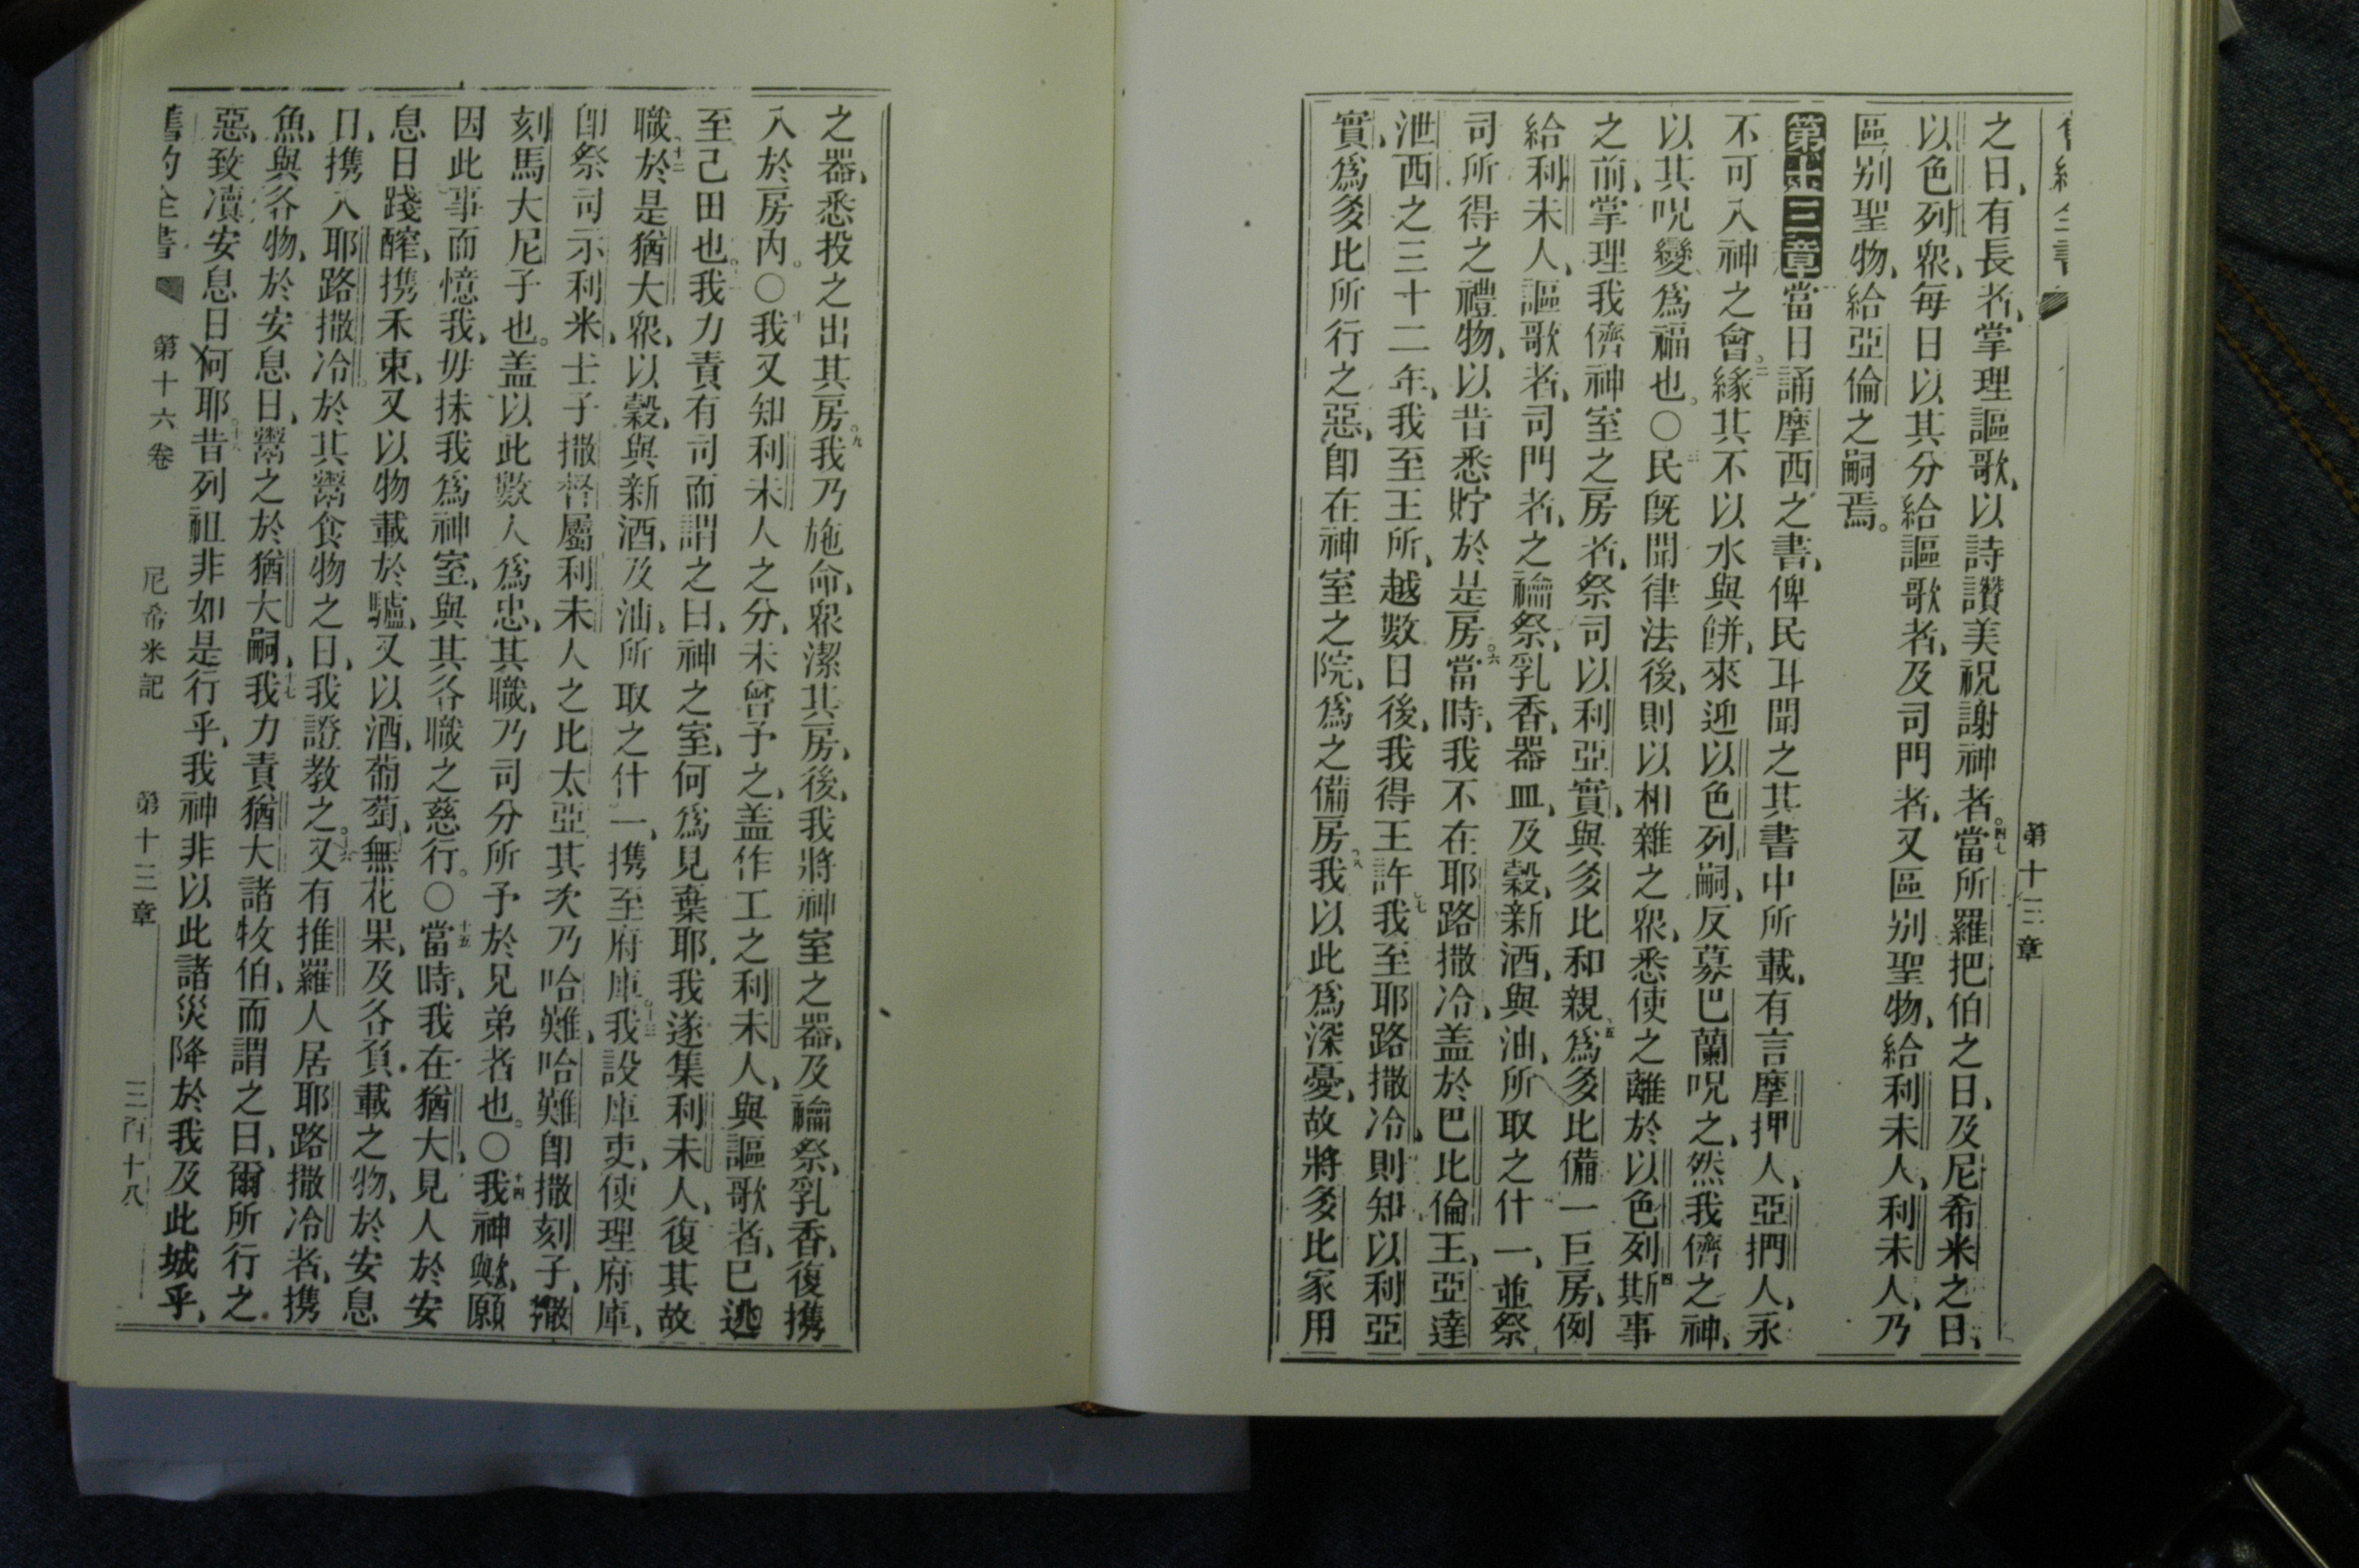 舊約全書 第十三章
之日、有長者、掌理謳歌、以詩讚美祝謝神者。四七當所羅把伯之日、及尼希米之日、
以色列眾、每日以其分給謳歌者、及司門者、又區別聖物、給利未人、利未人、乃
區別聖物、給亞倫之嗣焉。
第十三章當日誦摩西之書、俾民耳聞之其書中所載、有言摩押人、亞捫人、永
不可入神之會。二緣其不以水與餅、來迎以色列嗣、反募巴蘭呪之、然我儕之神、
以其呪變為福也。〇三民既聞律法後、則以相雜之眾、悉使之離於以色列四斯事
之前、掌理我儕神室之房者、祭司以利亞實、與多比和親、五為多比備一巨房、例
給利未人、謳歌者、司門者、之禴祭、乳香、器皿、及穀、新酒、與油、所取之什一、並祭
司所得之禮物、以昔悉貯於是房。六當時、我不在耶路撒冷、盖於巴比倫王、亞達
泄西之三十二年、我至王所、越數日後、我得王許、七我至耶路撒冷、則知以利亞
實、為多比所行之惡、即在神室之院、為之備房、八我以此為深憂、故將多比家用
之器、悉投之出其房。九我乃施命、眾潔其房、後、我將神室之器、及禴祭、乳香、復携
入於房內。〇十我又知利未人之分、未曾予之、盖作工之利未人、與謳歌者、已逃
至己田也。十一我力責有司而謂之曰、神之室、何為見棄耶、我遂集利未人、復其故
職、十二於是猶大眾、以穀、與新酒、及油、所取之什一、携至府庫。十三我設庫吏、使理府庫、
即祭司示利米、士子撒督屬利未人之比太亞其次乃哈難、哈難即撒刻子、撒
刻馬大尼子也。盖以此數人為忠、其職、乃司分所予於兄弟者也。〇十四我神歟、願
因此事而憶我、毋抹我為神室、與其各職之慈行。〇十五當時、我在猶大、見人於安
息日踐醡、携禾束、又以物載於驢、又以酒、葡萄、無花果、及各負載之物、於安息
日、携入耶路撒冷。於其鬻食物之日、我證教之。十六又有推羅人居耶路撒冷者、携
魚、與各物、於安息日、鬻之於猶大嗣、十七我力責猶大諸牧伯、而謂之曰、爾所行之
惡、致凟安息日、何耶。十八昔列祖非如是行乎、我神非以此諸災降於我及此城乎、
舊約全書 第十六卷 尼希米記 第十三章 三百十八